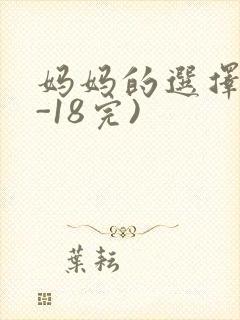 妈妈的選擇
-18完)
葉耘